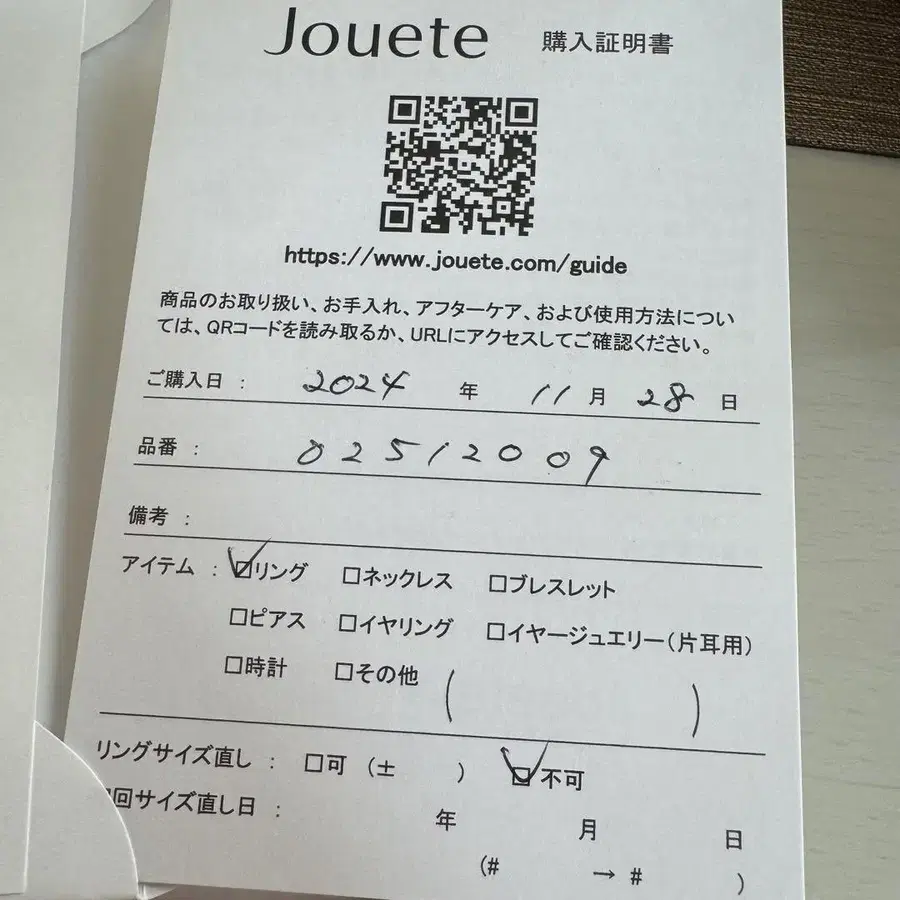 Jouete 購入証明書
https://www.jouete.com/guide
商品のお取り扱い、お手入れ、アフターケア、および使用方法につい
ては、QRコードを読み取るか、URLにアクセスしてご確認ください。
ご購入日 : 2024 年 11 月 28 日
品番 : 02512009
備考 :
アイテム : ☑リング □ネックレス □ブレスレット
□ピアス □イヤリング □イヤージュエリー(片耳用)
□時計 □その他 ( )
リングサイズ直し : □可 (± ) ☑不可
回サイズ直し日 : 年 月 日
(# → # )